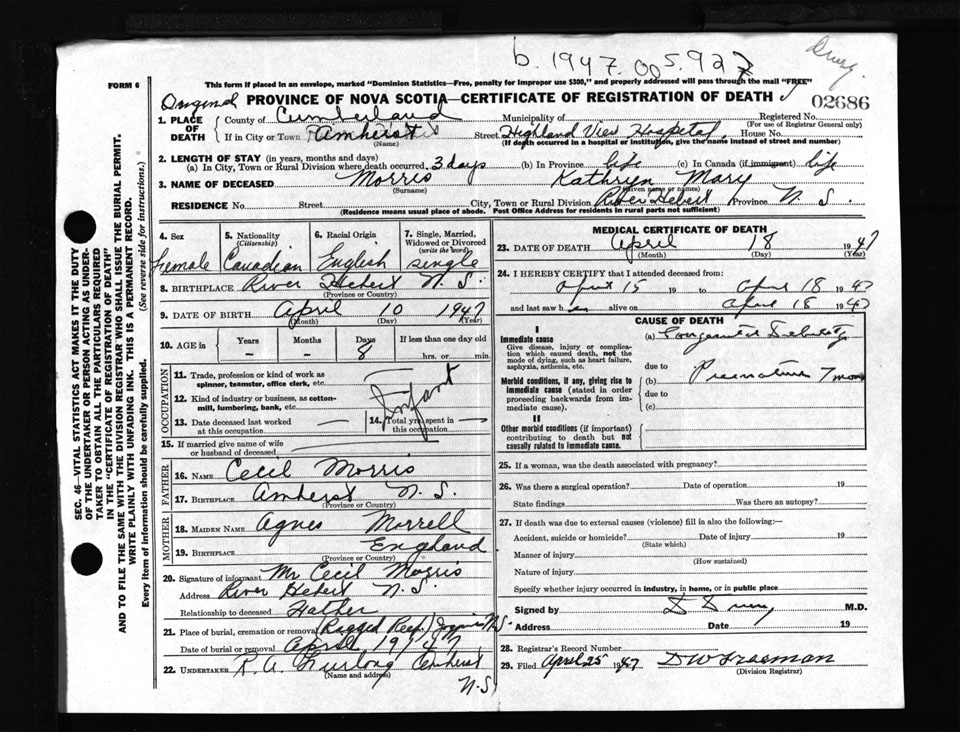 b. 1947. 005.927
FORM 6
This form if placed in an envelope, marked "Dominion Statistics—Free, penalty for improper use $300," and properly addressed will pass through the mail "FREE"
Original PROVINCE OF NOVA SCOTIA—CERTIFICATE OF REGISTRATION OF DEATH 02686
1. PLACE OF DEATH
County of Cumberland Municipality of Registered No.
(For use of Registrar General only)
If in City or Town Amherst Street Highland View Hospital, House No.
(Name) (If death occurred in a hospital or institution, give the name instead of street and number)
2. LENGTH OF STAY (in years, months and days)
(a) In City, Town or Rural Division where death occurred 3 days (b) In Province life (c) In Canada (if immigrant) life
3. NAME OF DECEASED Morris Kathryn Mary
(Surname) (Given name or names)
RESIDENCE No. Street City, Town or Rural Division River Hebert Province N. S.
(Residence means usual place of abode. Post Office Address for residents in rural parts not sufficient)
SEC. 46—VITAL STATISTICS ACT MAKES IT THE DUTY
OF THE UNDERTAKER OR PERSON ACTING AS UNDER-
TAKER TO OBTAIN ALL THE PARTICULARS REQUIRED
IN THE "CERTIFICATE OF REGISTRATION OF DEATH"
AND TO FILE THE SAME WITH THE DIVISION REGISTRAR WHO SHALL ISSUE THE BURIAL PERMIT.
WRITE PLAINLY WITH UNFADING INK. THIS IS A PERMANENT RECORD.
Every item of information should be carefully supplied. (See reverse side for instructions.)
4. Sex
Female
5. Nationality
(Citizenship)
Canadian
6. Racial Origin
English
7. Single, Married, Widowed or Divorced
(write the word)
single
8. BIRTHPLACE River Hebert N. S.
(Province or Country)
9. DATE OF BIRTH April 10 1947
(Month) (Day) (Year)
10. AGE in Years Months Days If less than one day old
– – 8 hrs. or min.
OCCUPATION
11. Trade, profession or kind of work as
spinner, teamster, office clerk, etc.
12. Kind of industry or business, as cotton-
mill, lumbering, bank, etc.
Infant
13. Date deceased last worked
at this occupation
14. Total yrs. spent in
this occupation
15. If married give name of wife
or husband of deceased
FATHER
16. NAME Cecil Morris
17. BIRTHPLACE Amherst N. S.
(Province or Country)
MOTHER
18. MAIDEN NAME Agnes Morrell
19. BIRTHPLACE England
(Province or Country)
20. Signature of informant Mr Cecil Morris
Address River Hebert N. S.
Relationship to deceased Father
21. Place of burial, cremation or removal (Ragged Reef) Joggins N.S.
Date of burial or removal April 19/47
22. UNDERTAKER R. A. Furlong Amherst
(Name and address) N.S
MEDICAL CERTIFICATE OF DEATH
23. DATE OF DEATH April 18 1947
(Month) (Day) (Year)
24. I HEREBY CERTIFY that I attended deceased from:
April 15 19 to April 18 1947
and last saw her alive on April 18 1947
CAUSE OF DEATH
I
Immediate cause
Give disease, injury or complica-
tion which caused death, not the
mode of dying, such as heart failure,
asphyxia, asthenia, etc.
(a) Congenital Debility
due to
Morbid conditions, if any, giving rise to
immediate cause (stated in order
proceeding backwards from im-
mediate cause).
(b) Premature 7 mos
due to
(c)
II
Other morbid conditions (if important)
contributing to death but not
causally related to immediate cause.
25. If a woman, was the death associated with pregnancy?
26. Was there a surgical operation? Date of operation 19
State findings Was there an autopsy?
27. If death was due to external causes (violence) fill in also the following:—
Accident, suicide or homicide? Date of injury 19
(State which)
Manner of injury
(How sustained)
Nature of injury
Specify whether injury occurred in industry, in home, or in public place
Signed by M.D.
Address Date 19
28. Registrar's Record Number
29. Filed April 25 1947 D W Freeman
(Division Registrar)